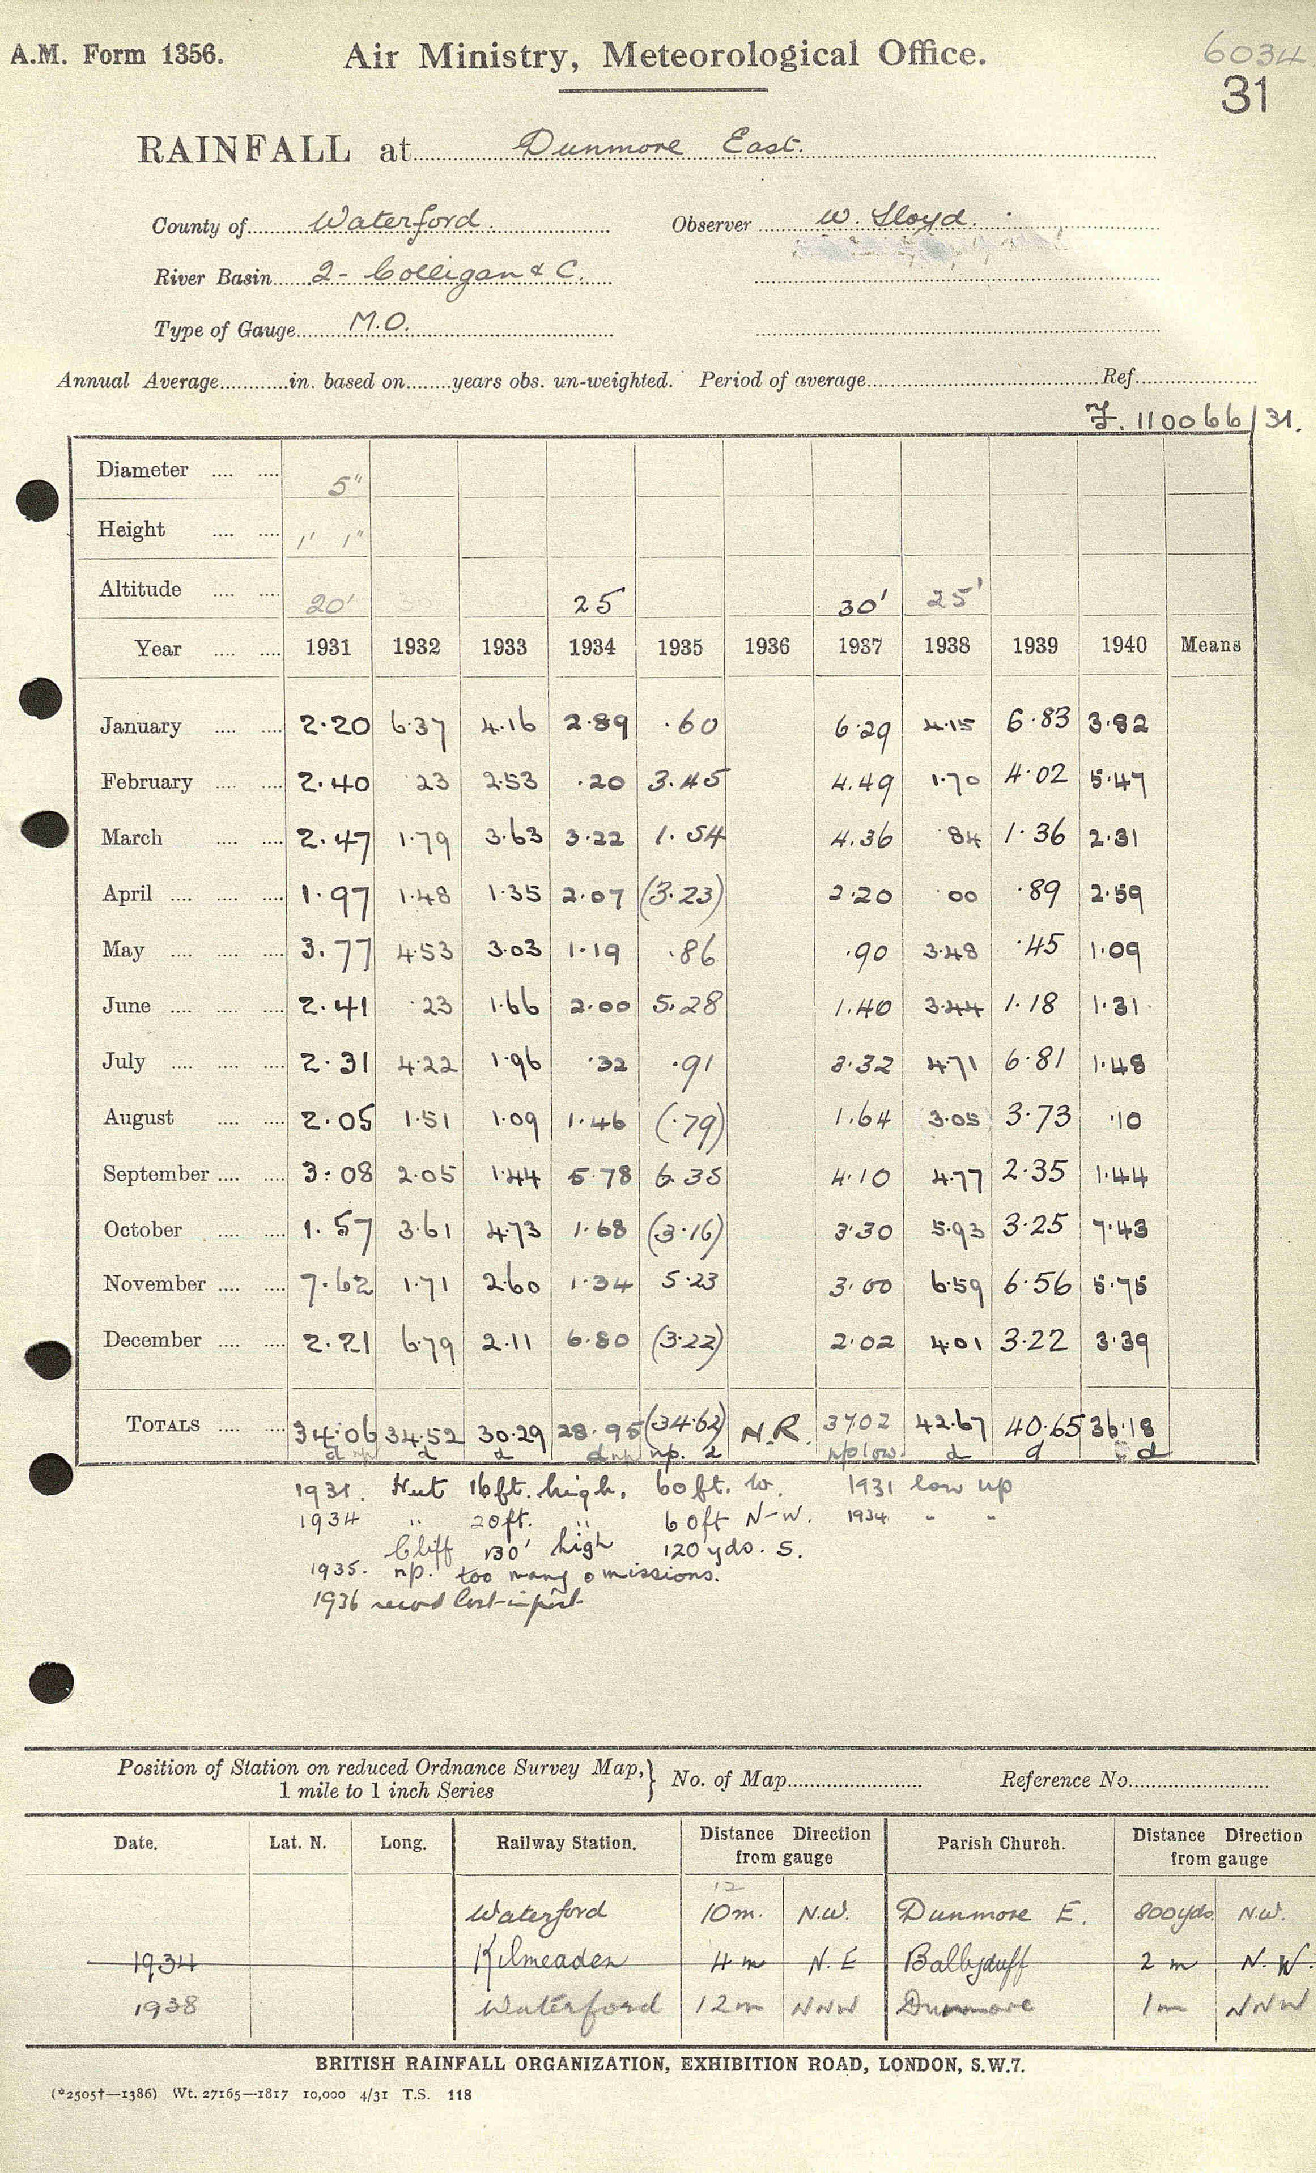 A.M. Form 1356. Air Ministry, Meteorological Office. 6034
31
RAINFALL at Dunmore East.
County of Waterford. Observer W. Lloyd.
River Basin 2 - Colligan & C.
Type of Gauge M.O.
Annual Average in. based on years obs. un-weighted. Period of average Ref.
F. 110066/31.
Diameter 5"
Height 1' 1"
Altitude 20' 25 30' 25'
Year 1931 1932 1933 1934 1935 1936 1937 1938 1939 1940 Means
January 2.20 6.37 4.16 2.89 .60 6.29 4.15 6.83 3.82
February 2.40 .23 2.53 .20 3.45 4.49 1.70 4.02 5.47
March 2.47 1.79 3.63 3.22 1.54 4.36 .84 1.36 2.31
April 1.97 1.48 1.35 2.07 (3.23) 2.20 00 .89 2.59
May 3.77 4.53 3.03 1.19 .86 .90 3.48 .45 1.09
June 2.41 .23 1.66 2.00 5.28 1.40 3.44 1.18 1.31
July 2.31 4.22 1.96 .32 .91 3.32 4.71 6.81 1.48
August 2.05 1.51 1.09 1.46 (.79) 1.64 3.05 3.73 .10
September 3.08 2.05 1.44 5.78 6.35 4.10 4.77 2.35 1.44
October 1.57 3.61 4.73 1.68 (3.16) 3.30 5.93 3.25 7.43
November 7.62 1.71 2.60 1.34 5.23 3.00 6.59 6.56 5.75
December 2.21 6.79 2.11 6.80 (3.22) 2.02 4.01 3.22 3.39
TOTALS 34.06 34.52 30.29 28.95 (34.62) N.R. 37.02 42.67 40.65 36.18
d np d d d np np. d np low. d d d
1931. Hut 16ft. high, 60ft. W. 1931 low up
1934 " 20ft. " 60ft N-W. 1934 " "
Cliff 130' high 120yds. S.
1935. np. too many omissions.
1936 record lost in post
Position of Station on reduced Ordnance Survey Map, 1 mile to 1 inch Series } No. of Map Reference No.
Date. Lat. N. Long. Railway Station. Distance Direction from gauge Parish Church. Distance Direction from gauge
12
Waterford 10m. N.W. Dunmore E. 800yds N.W.
1934 Kilmeaden 4 m N.E Ballyduff 2 m N.W.
1938 Waterford 12m NNW Dunmore 1m NNW
BRITISH RAINFALL ORGANIZATION, EXHIBITION ROAD, LONDON, S.W.7.
(*2505†—1386) Wt. 27165—1817 10,000 4/31 T.S. 118